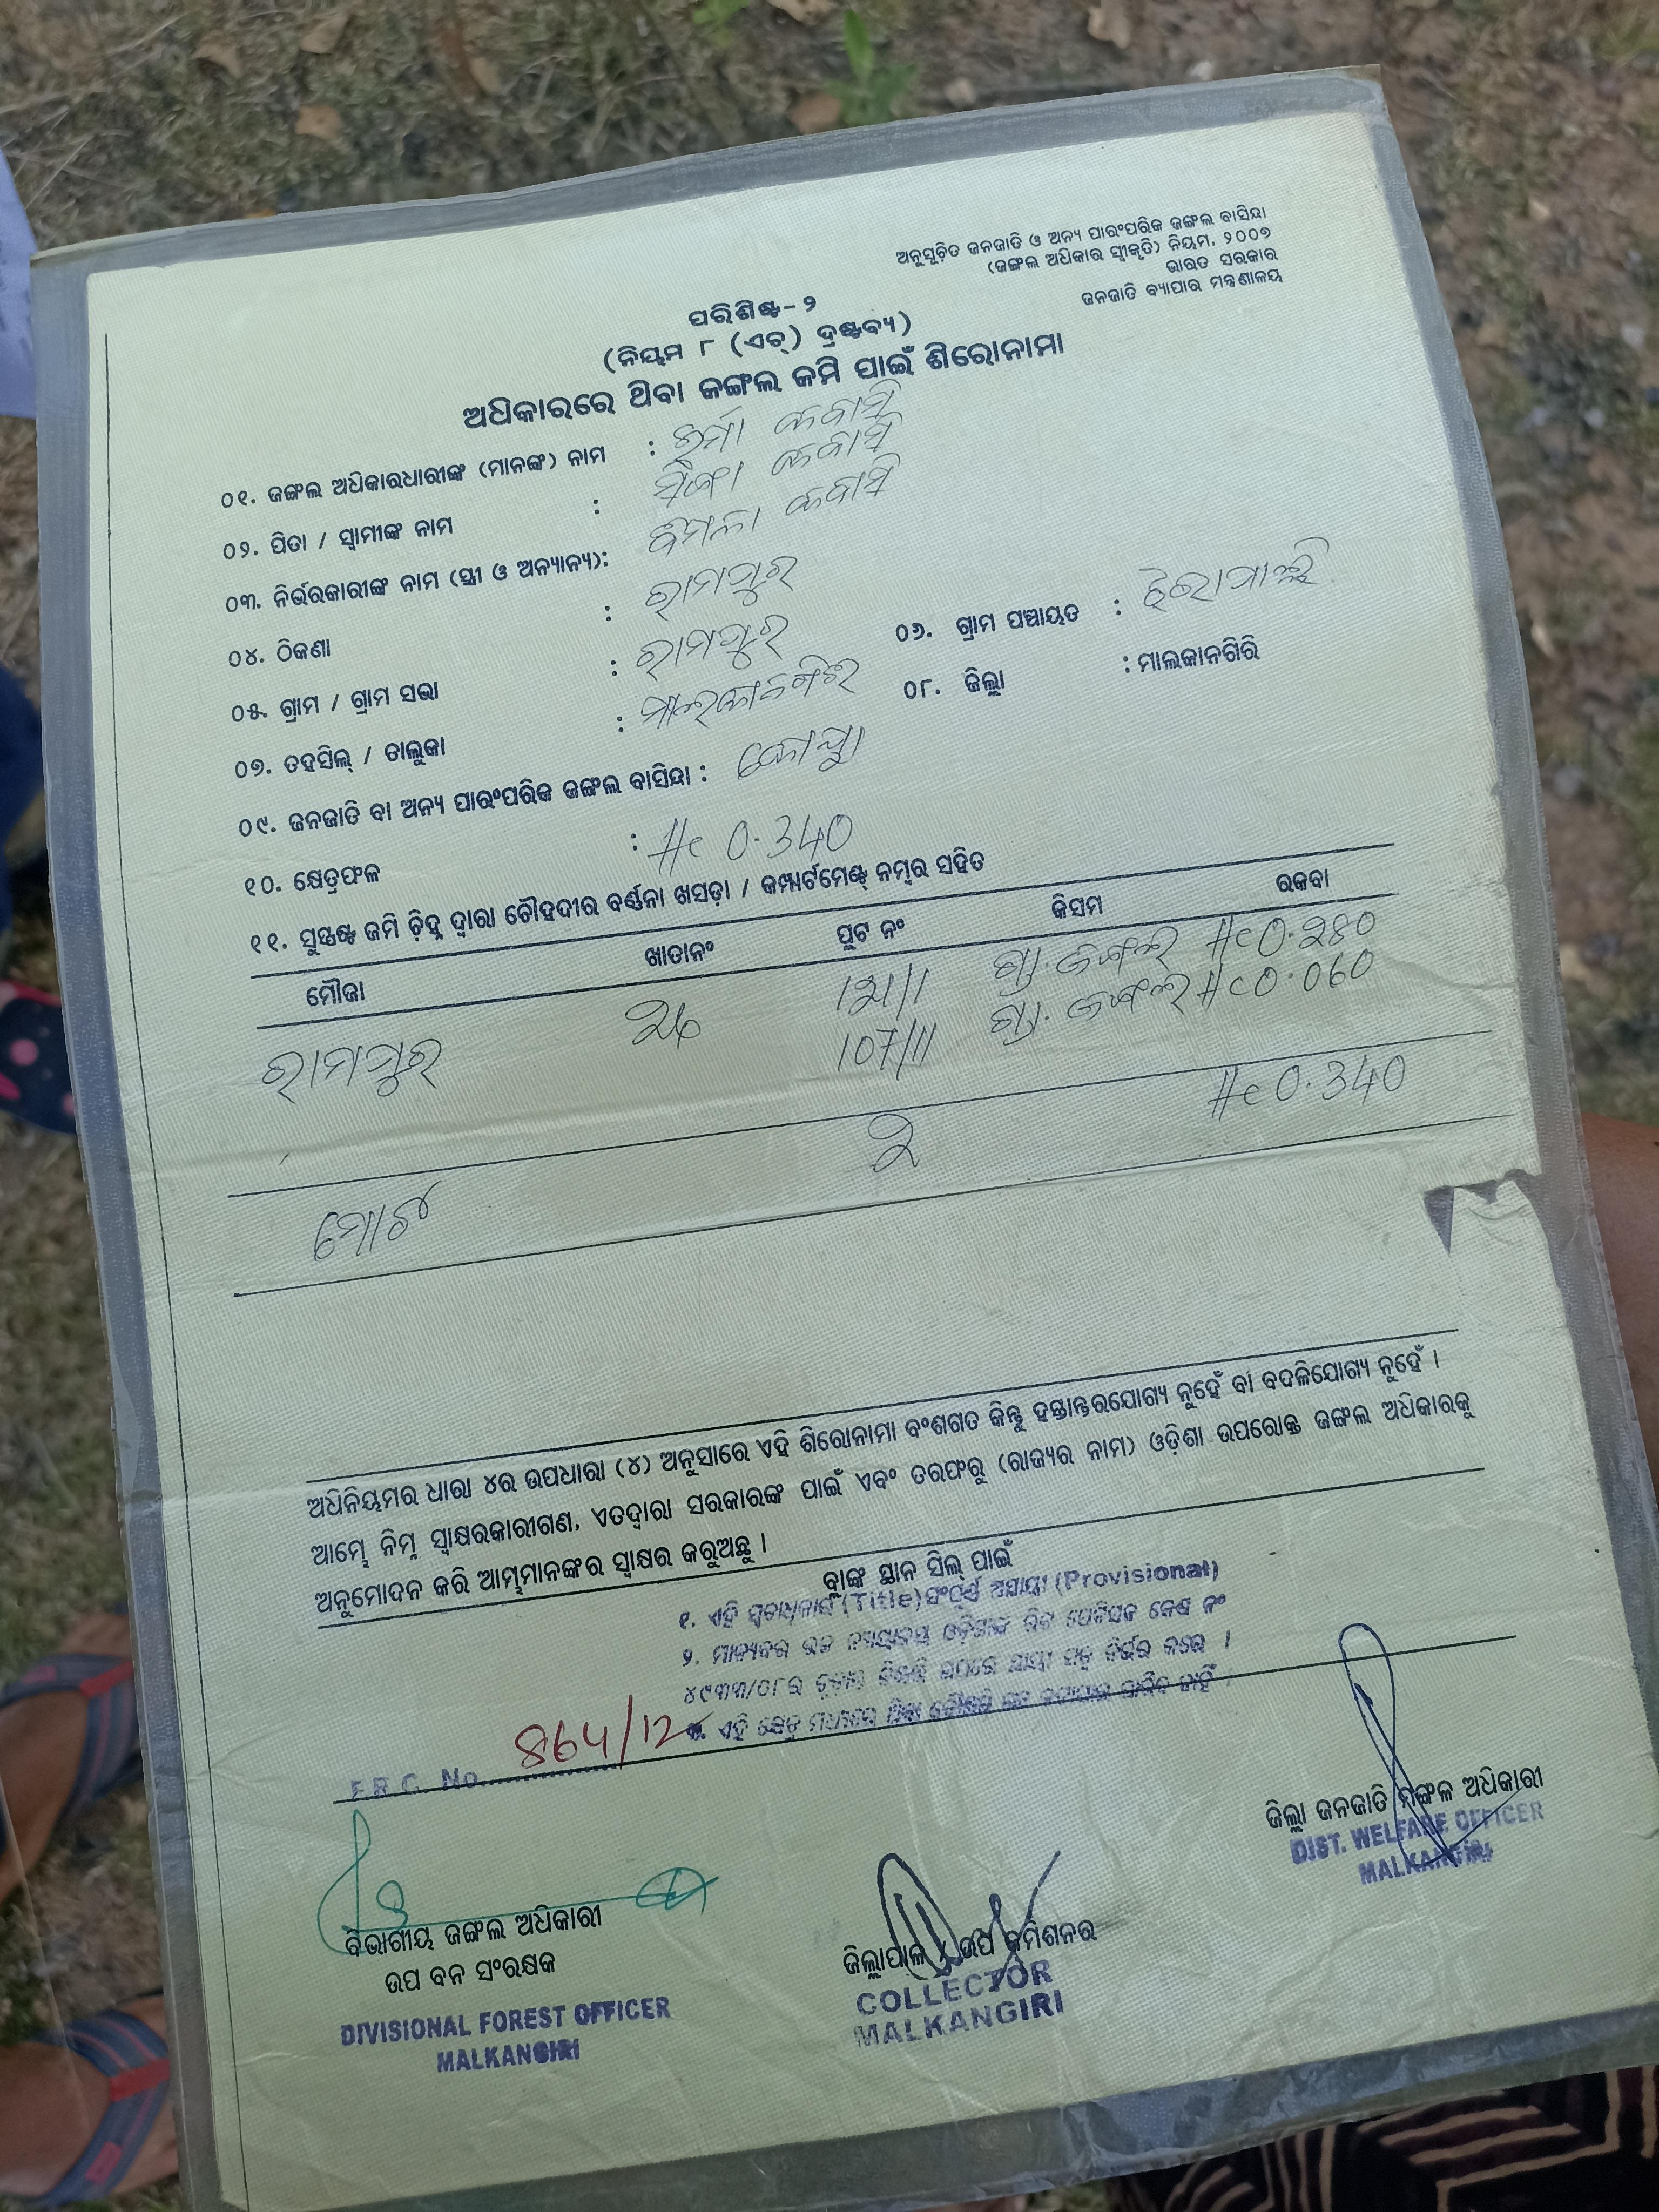 ଅନୁସୂଚିତ ଜନଜାତି ଓ ଅନ୍ୟ ପାରଂପରିକ ଜଙ୍ଗଲ ବାସିନ୍ଦା
(ଜଙ୍ଗଲ ଅଧିକାର ସ୍ୱୀକୃତି) ନିୟମ, ୨୦୦୭
ଭାରତ ସରକାର
ଜନଜାତି ବ୍ୟାପାର ମନ୍ତ୍ରଣାଳୟ
ପରିଶିଷ୍ଟ-୨
(ନିୟମ ୮ (ଏଚ୍) ଦ୍ରଷ୍ଟବ୍ୟ)
ଅଧିକାରରେ ଥିବା ଜଙ୍ଗଲ ଜମି ପାଇଁ ଶିରୋନାମା
୦୧. ଜଙ୍ଗଲ ଅଧିକାରଧାରୀଙ୍କ (ମାନଙ୍କ) ନାମ :
୦୨. ପିତା / ସ୍ୱାମୀଙ୍କ ନାମ :
୦୩. ନିର୍ଭରକାରୀଙ୍କ ନାମ (ସ୍ତ୍ରୀ ଓ ଅନ୍ୟାନ୍ୟ):
୦୪. ଠିକଣା : ରାମପୁର
୦୫. ଗ୍ରାମ / ଗ୍ରାମ ସଭା : ରାମପୁର ୦୬. ଗ୍ରାମ ପଞ୍ଚାୟତ :
୦୭. ତହସିଲ୍ / ତାଲୁକା : ମାଲକାନଗିରି ୦୮. ଜିଲ୍ଲା : ମାଲକାନଗିରି
୦୯. ଜନଜାତି ବା ଅନ୍ୟ ପାରଂପରିକ ଜଙ୍ଗଲ ବାସିନ୍ଦା : କୋୟା
୧୦. କ୍ଷେତ୍ରଫଳ : Hc 0.340
୧୧. ସୁସ୍ପଷ୍ଟ ଜମି ଚିହ୍ନ ଦ୍ୱାରା ଚୌହଦୀର ବର୍ଣ୍ଣନା ଖସଡ଼ା / କମ୍ପାର୍ଟମେଣ୍ଟ୍ ନମ୍ବର ସହିତ
ମୌଜା ଖାତାନଂ ପ୍ଲଟ ନଂ କିସମ ରକବା
ରାମପୁର ଗ୍ରା. ଜଙ୍ଗଲ Hc 0.280
107/11 ଗ୍ରା. ଜଙ୍ଗଲ Hc 0.060
ମୋଟ ୨ Hc 0.340
ଅଧିନିୟମର ଧାରା ୪ର ଉପଧାରା (୪) ଅନୁସାରେ ଏହି ଶିରୋନାମା ବଂଶଗତ କିନ୍ତୁ ହସ୍ତାନ୍ତରଯୋଗ୍ୟ ନୁହେଁ ବା ବଦଳିଯୋଗ୍ୟ ନୁହେଁ ।
ଆମ୍ଭେ ନିମ୍ନ ସ୍ୱାକ୍ଷରକାରୀଗଣ, ଏତଦ୍ୱାରା ସରକାରଙ୍କ ପାଇଁ ଏବଂ ତରଫରୁ (ରାଜ୍ୟର ନାମ) ଓଡ଼ିଶା ଉପରୋକ୍ତ ଜଙ୍ଗଲ ଅଧିକାରକୁ
ଅନୁମୋଦନ କରି ଆମ୍ଭମାନଙ୍କର ସ୍ୱାକ୍ଷର କରୁଅଛୁ ।
ବ୍ଲାଙ୍କ ସ୍ଥାନ ସିଲ୍ ପାଇଁ
୧. ଏହି (Title) (Provisional)
୨. କେଶ ନଂ
୪୯୩୩/୦୮ର ନିର୍ଭର କରେ ।
୩. ଏହି ନାହିଁ ।
F.R.C. No. 864/12
ଜିଲ୍ଲା ଜନଜାତି ମଙ୍ଗଳ ଅଧିକାରୀ
DIST. WELFARE OFFICER
MALKANGIRI
ବିଭାଗୀୟ ଜଙ୍ଗଲ ଅଧିକାରୀ
ଉପ ବନ ସଂରକ୍ଷକ
DIVISIONAL FOREST OFFICER
MALKANGIRI
ଜିଲ୍ଲାପାଳ / ଉପ କମିଶନର
COLLECTOR
MALKANGIRI